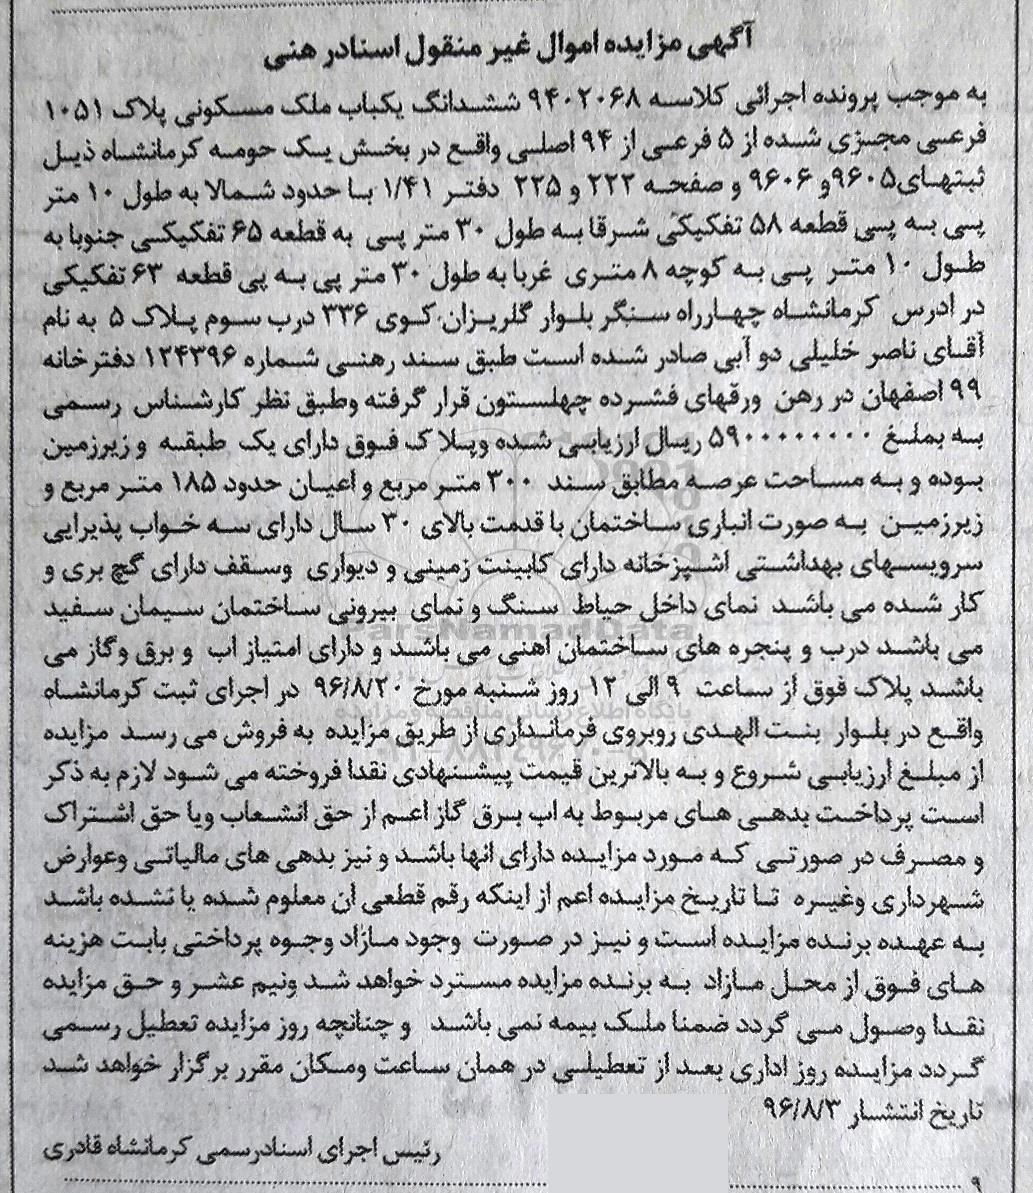 آگهی مزایده اموال غیر منقول اسنادرهنی
به موجب پرونده اجرائی کلاسه ۹۴۰۲۰۶۸ ششدانگ یکباب ملک مسکونی پلاک ۱۰۵۱
فرعی مجزی شده از ۵ فرعی از ۹۴ اصلی واقع در بخش یک حومه کرمانشاه ذیل
ثبتهای۹۶۰۵و ۹۶۰۶ و صفحه ۲۲۲ و ۲۲۵ دفتر ۱/۴۱ با حدود شمالا به طول ۱۰ متر
پی به پی قطعه ۵۸ تفکیکی شرقا به طول ۳۰ متر پی به قطعه ۶۵ تفکیکی جنوبا به
طول ۱۰ متر پی به کوچه ۸ متری غربا به طول ۳۰ متر پی به پی قطعه ۶۳ تفکیکی
در ادرس کرمانشاه چهارراه سنگر بلوار گلریزان کوی ۳۳۶ درب سوم پلاک ۵ به نام
آقای ناصر خلیلی دو آبی صادر شده است طبق سند رهنی شماره ۱۲۴۳۹۶ دفترخانه
۹۹ اصفهان در رهن ورقهای فشرده چهلستون قرار گرفته وطبق نظر کارشناس رسمی
به بملغ ۵۹۰۰۰۰۰۰۰۰ ریال ارزیابی شده وپلاک فوق دارای یک طبقه و زیرزمین
بوده و به مساحت عرصه مطابق سند ۳۰۰ متر مربع و اعیان حدود ۱۸۵ متر مربع و
زیرزمین به صورت انباری ساختمان با قدمت بالای ۳۰ سال دارای سه خواب پذیرایی
سرویسهای بهداشتی اشپزخانه دارای کابینت زمینی و دیواری وسقف دارای گچ بری و
کار شده می باشد نمای داخل حیاط سنگ و نمای بیرونی ساختمان سیمان سفید
می باشد درب و پنجره های ساختمان اهنی می باشد و دارای امتیاز اب و برق وگاز می
باشد پلاک فوق از ساعت ۹ الی ۱۲ روز شنبه مورخ ۹۶/۸/۲۰ در اجرای ثبت کرمانشاه
واقع در بلوار بنت الهدی روبروی فرمانداری از طریق مزایده به فروش می رسد مزایده
از مبلغ ارزیابی شروع و به بالاترین قیمت پیشنهادی نقدا فروخته می شود لازم به ذکر
است پرداخت بدهی های مربوط به اب برق گاز اعم از حق انشعاب ویا حق اشتراک
و مصرف در صورتی که مورد مزایده دارای انها باشد و نیز بدهی های مالیاتی وعوارض
شهرداری وغیره تا تاریخ مزایده اعم از اینکه رقم قطعی ان معلوم شده یا نشده باشد
به عهده برنده مزایده است و نیز در صورت وجود مازاد وجوه پرداختی بابت هزینه
های فوق از محل مازاد به برنده مزایده مسترد خواهد شد ونیم عشر و حق مزایده
نقدا وصول می گردد ضمنا ملک بیمه نمی باشد و چنانچه روز مزایده تعطیل رسمی
گردد مزایده روز اداری بعد از تعطیلی در همان ساعت ومکان مقرر برگزار خواهد شد
تاریخ انتشار ۹۶/۸/۳
رئیس اجرای اسنادرسمی کرمانشاه قادری
۹
ParsNamadData
پایگاه اطلاع رسانی مناقصه و مزایده